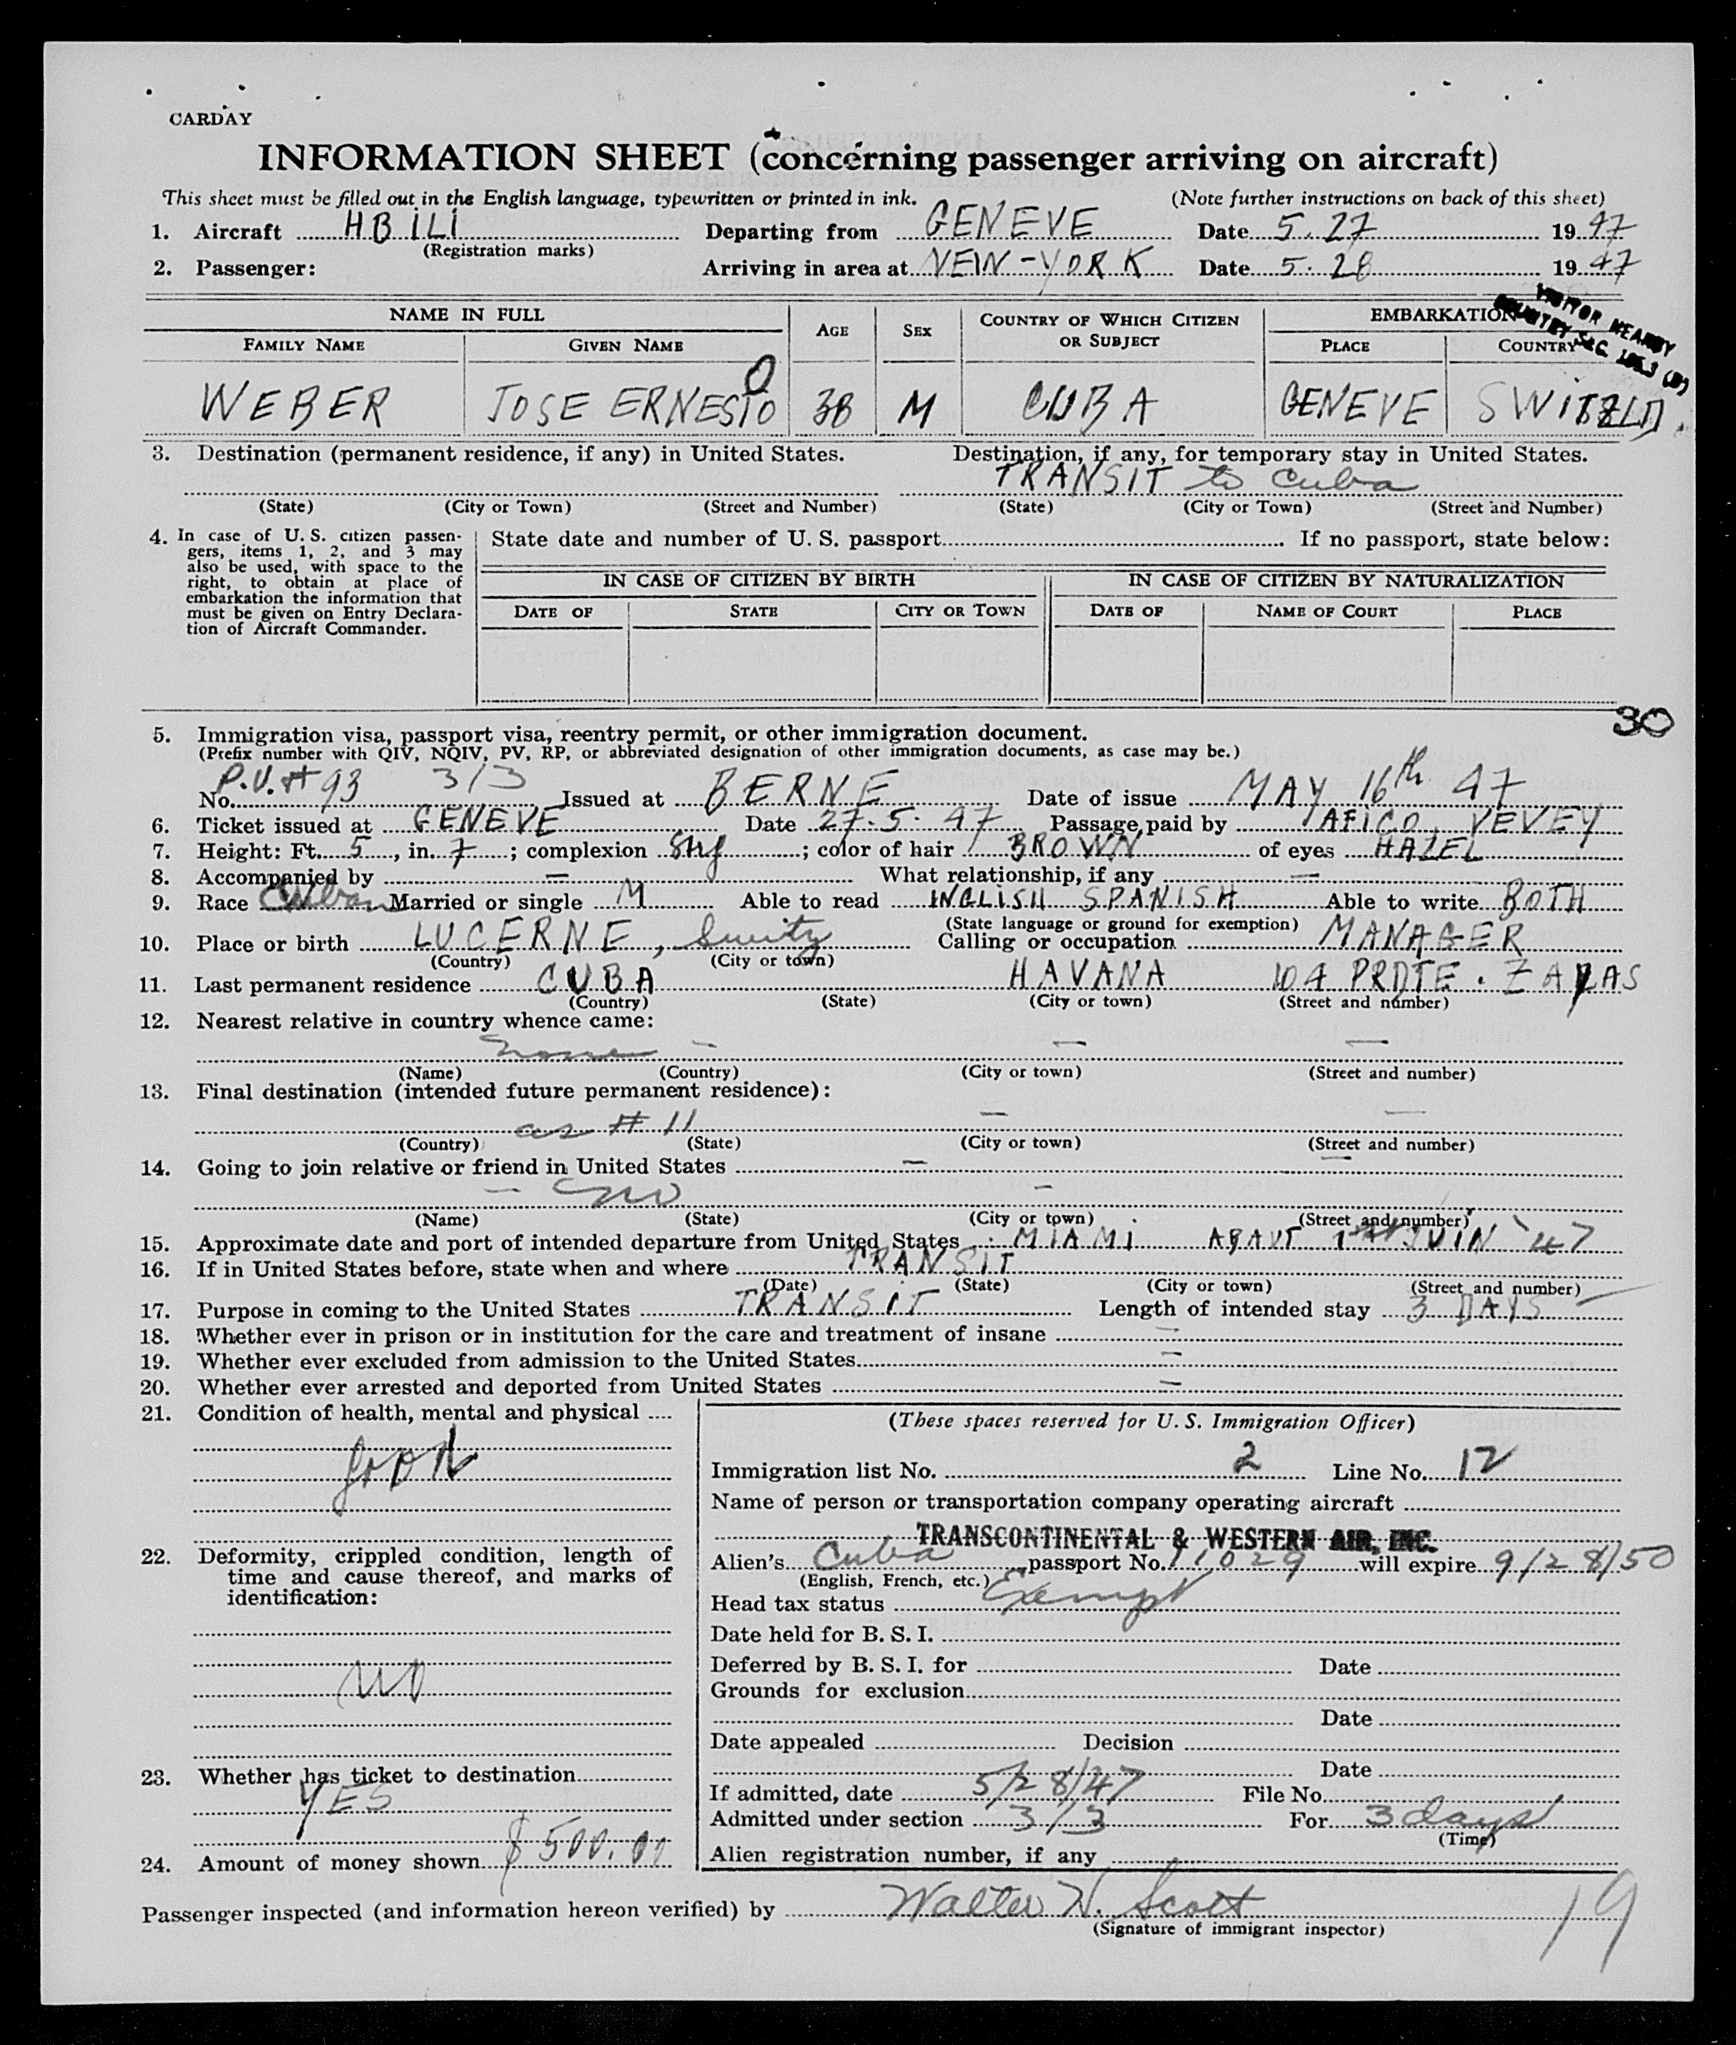 CARDAY
INFORMATION SHEET (concerning passenger arriving on aircraft)
This sheet must be filled out in the English language, typewritten or printed in ink. (Note further instructions on back of this sheet)
1. Aircraft HB ILI Departing from GENEVE Date 5.27 1947
(Registration marks)
2. Passenger: Arriving in area at NEW-YORK Date 5.28 1947
VISITOR NEARBY
COUNTRY SEC.
NAME IN FULL AGE SEX COUNTRY OF WHICH CITIZEN OR SUBJECT EMBARKATION
FAMILY NAME GIVEN NAME PLACE COUNTRY
WEBER JOSE ERNESTO 38 M CUBA GENEVE SWITZLD.
3. Destination (permanent residence, if any) in United States. Destination, if any, for temporary stay in United States.
TRANSIT to Cuba
(State) (City or Town) (Street and Number) (State) (City or Town) (Street and Number)
4. In case of U. S. citizen passen-
gers, items 1, 2, and 3 may
also be used, with space to the
right, to obtain at place of
embarkation the information that
must be given on Entry Declara-
tion of Aircraft Commander.
State date and number of U. S. passport If no passport, state below:
IN CASE OF CITIZEN BY BIRTH IN CASE OF CITIZEN BY NATURALIZATION
DATE OF STATE CITY OR TOWN DATE OF NAME OF COURT PLACE
30
5. Immigration visa, passport visa, reentry permit, or other immigration document.
(Prefix number with QIV, NQIV, PV, RP, or abbreviated designation of other immigration documents, as case may be.)
No. P.V. # 93 3/3 Issued at BERNE Date of issue MAY 16th 47
6. Ticket issued at GENEVE Date 27.5.47 Passage paid by AFICO, VEVEY
7. Height: Ft. 5, in. 7; complexion color of hair BROWN of eyes HAZEL
8. Accompanied by — What relationship, if any —
9. Race Cuban Married or single M Able to read INGLISH SPANISH Able to write BOTH
(State language or ground for exemption)
10. Place or birth LUCERNE, Switz Calling or occupation MANAGER
(Country) (City or town)
11. Last permanent residence CUBA HAVANA 104 PRDTE. ZAYAS
(Country) (State) (City or town) (Street and number)
12. Nearest relative in country whence came:
none — — —
(Name) (Country) (City or town) (Street and number)
13. Final destination (intended future permanent residence):
as # 11 — —
(Country) (State) (City or town) (Street and number)
14. Going to join relative or friend in United States — —
— no —
(Name) (State) (City or town) (Street and number)
15. Approximate date and port of intended departure from United States MIAMI ABAUT 1st JUIN '47
16. If in United States before, state when and where TRANSIT
(Date) (State) (City or town) (Street and number)
17. Purpose in coming to the United States TRANSIT Length of intended stay 3 DAYS
18. Whether ever in prison or in institution for the care and treatment of insane —
19. Whether ever excluded from admission to the United States —
20. Whether ever arrested and deported from United States —
21. Condition of health, mental and physical
good
22. Deformity, crippled condition, length of
time and cause thereof, and marks of
identification:
NO
23. Whether has ticket to destination
YES
24. Amount of money shown $500.00
(These spaces reserved for U. S. Immigration Officer)
Immigration list No. 2 Line No. 12
Name of person or transportation company operating aircraft
TRANSCONTINENTAL & WESTERN AIR, INC.
Alien's Cuba passport No. 11029 will expire 9/28/50
(English, French, etc.)
Head tax status Exempt
Date held for B. S. I.
Deferred by B. S. I. for Date
Grounds for exclusion
Date
Date appealed Decision
Date
If admitted, date 5/28/47 File No.
Admitted under section 3/3 For 3 days
(Time)
Alien registration number, if any
Passenger inspected (and information hereon verified) by Walter N. Scott
(Signature of immigrant inspector)
19